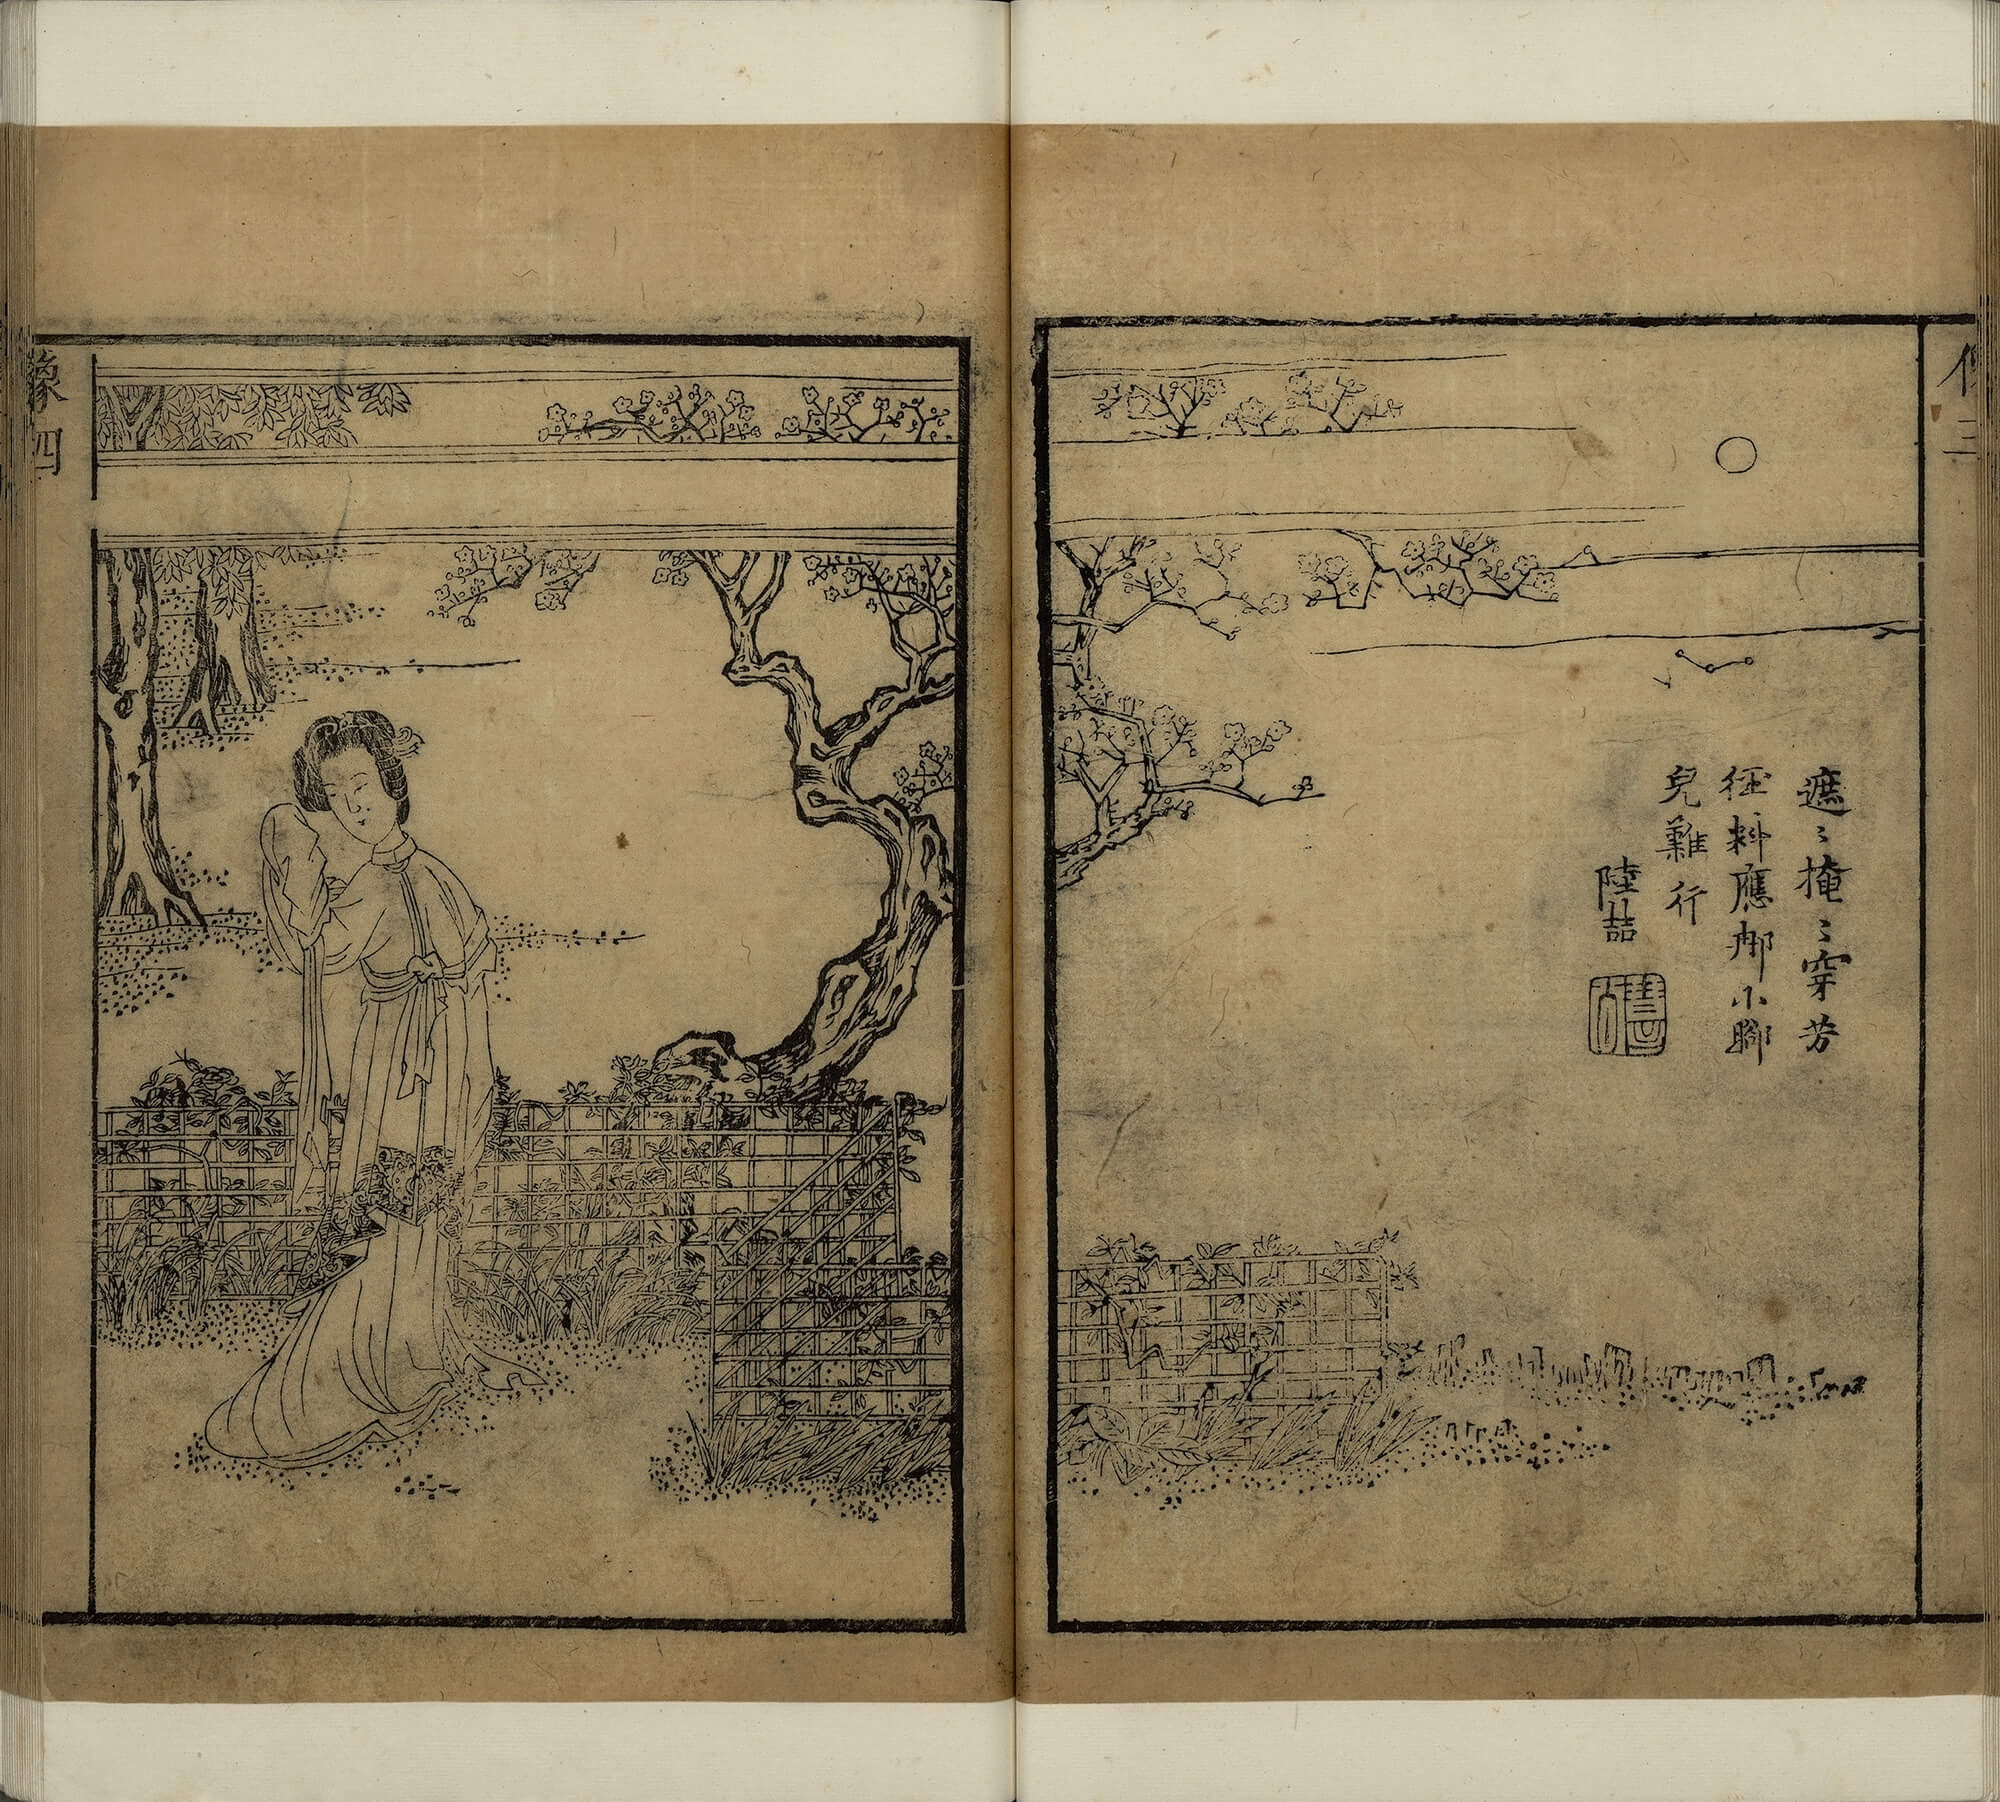 像三
遮〻掩〻穿芳
徑料應𨚗小腳
兒難行
陸喆
像四